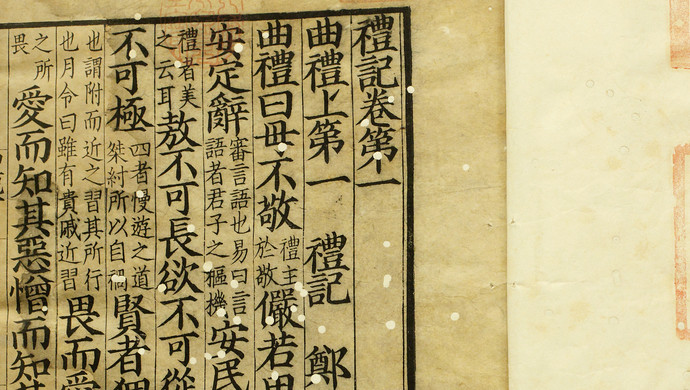 禮記卷第一
曲禮上第一 禮記 鄭
曲禮曰毋不敬 禮主於敬 儼若思
安定辭 審言語也易曰言語者君子之樞機 安民
禮者美之云耳 敖不可長欲不可從
不可極 四者慢遊之道桀紂所以自禍 賢者狎
也謂附而近之習其所行也月令曰雖有貴戚近習 畏而愛
之所畏 愛而知其惡憎而知其